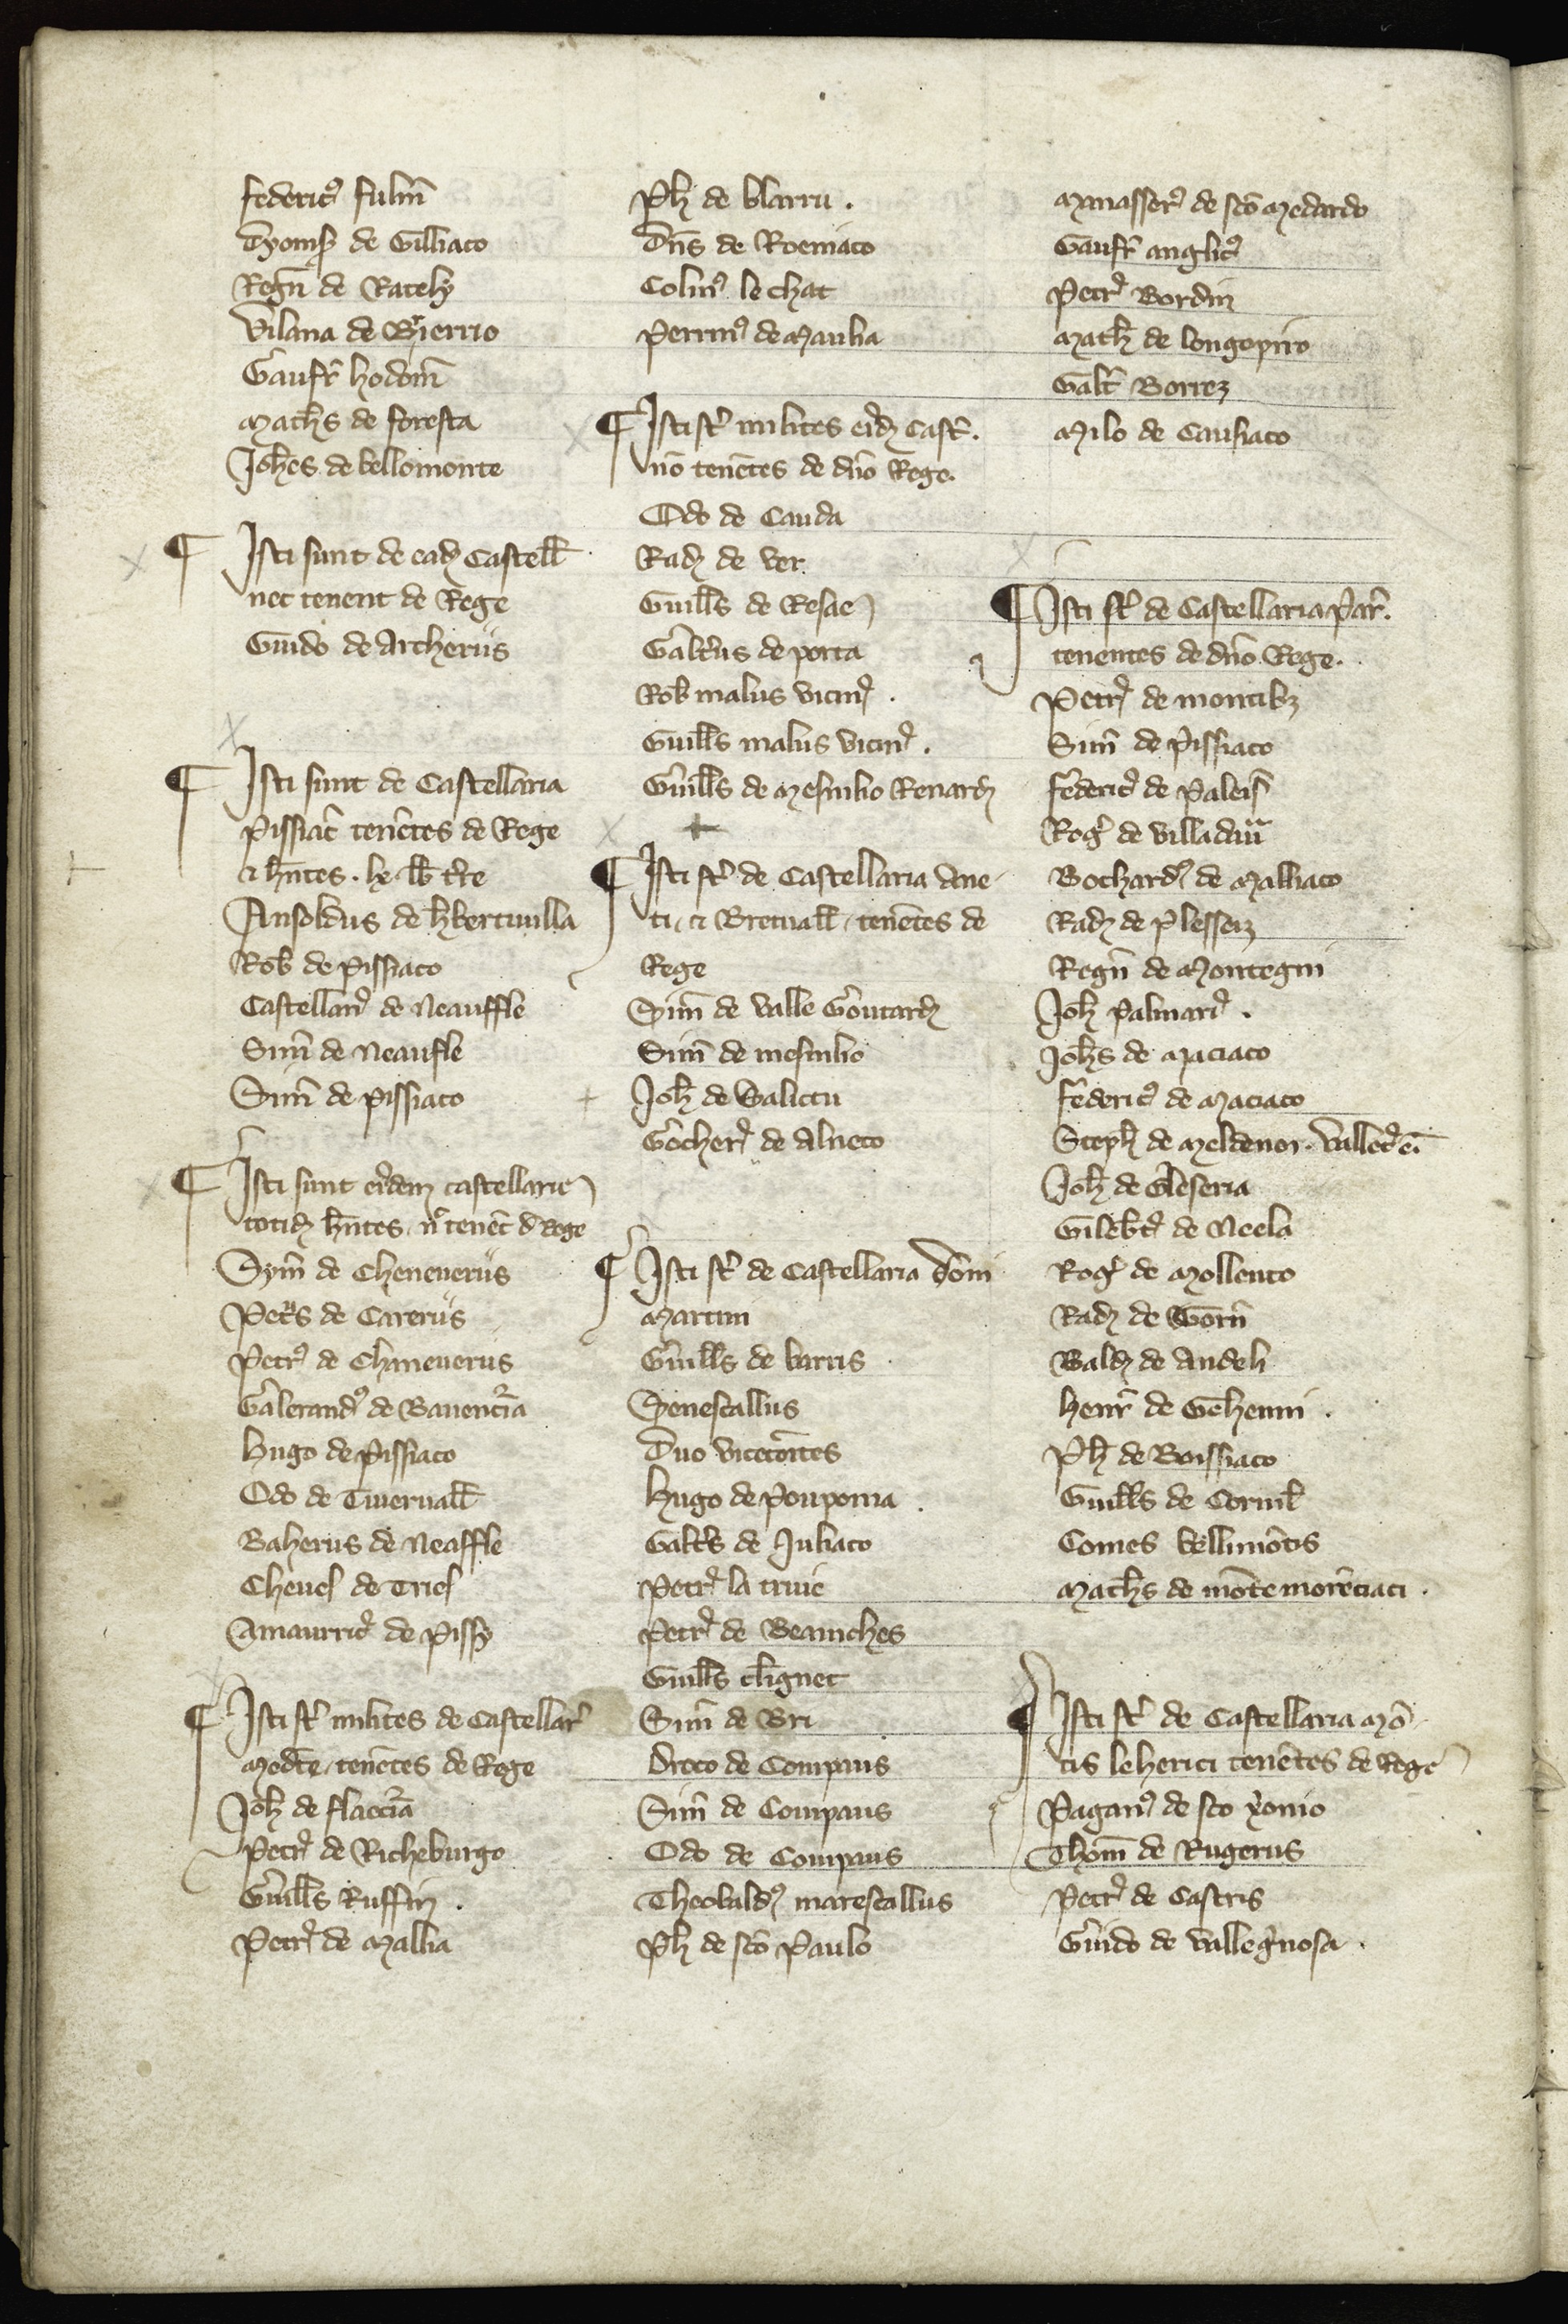 federicꝰ fulm̄
Thomꝭ de Gilliaco
Regn̄ de Rately
Vilana de
Gaufr̄ hodom̄
Math̄s de foresta
Joh̄es de bellomonte
¶ Isti sunt de ead̄ Castell̄
nec tenent de Rege
Guido de Archeriis
¶ Isti sunt de Castellaria
pissiac̄ ten̄etes de Rege
⁊ h̄ntes . lx . lib̄ t̄re
Ansoldus de h̄bertuilla
Rob̄ de pissiaco
Castellanꝰ de Neauffle
Sim̄ de Neaufle
Sim̄ de pissiaco
¶ Isti sunt eiꝰdem castellarie
totid̄ h̄ntes, nꝰ tenēt d̄ Rege
Sym̄ de Cheneueriis
Petrꝰs de Careriis
Petrꝰ de Chaneueriis
Galerandꝰ de Bauent̄ia
hugo de pissiaco
Odo de Tiueruall̄
Baherus de Neaffle
Cheues de Tries
Amaurricꝰ de pissy
¶ Isti st̄ milites de Castellar̄
Medn̄te, ten̄etes de Rege
Joh̄ de flaec̄ia
petrꝰ de Richeburgo
Guill̄s Ruffin .
Petrꝰ de Mallia
Ph̄ de blarru .
Dn̄s de Roeniaco
Colinꝰ le chat
Perrinꝰ de Maulia
¶ Isti st̄ milites eiꝰd̄ Cast̄ .
nō tenētes de dn̄o Rege.
Odo de Cauda
Rad̄ de ver
Guill̄s de Resae
Galt̄us de porta
Rob̄ malus vicinꝰ .
Guill̄s malus vicinꝰ .
Guill̄s de Mesnilio Renard̄
¶ Isti st̄ de Castellaria Ane
ti, ⁊ Bretuall̄, tenētes de
Rege
Sim̄ de valle Goutard̄
Sim̄ de mesnilio
Joh̄ de Salictu
Gocherꝰ de Alneto
¶ Isti st̄ de Castellaria dom̄i
Martini
Guill̄s de barris
Senescallus
Duo vicecōites
hugo de Pouponia .
Galt̄s de Juliaco
Petrꝰ la truie
Petrꝰ de Beamches
Guill̄s cl̄ignet
Sim̄ de Bri
Droco de Compans
Sim̄ de Compans
Odo de Compans
Theobaldꝰ marescallus
Ph̄ de scō Paulo
Manasserꝰ de scō Medardo
Gaufr̄ anglicꝰ
Petrꝰ Bordin
Math̄ de longopiro
Galt̄ Borrez
Milo de Causiaco
¶ Isti st̄ de Castellaria par̄.
tenentes de dn̄o Rege.
Petrꝰ de montibꝫ
Sim̄ de pissiaco
federicꝰ de Paleis̄
Rogꝰ de villa
Bochardꝰ de Malliaco
Rad̄ de plessez
Regn̄ de Montegni
Joh̄ palmarꝰ .
Joh̄s de Maciaco
federicꝰ de Maciaco
Steph̄ de Meldenor. valletꝰ ē.
Joh̄ de Gleseria
Gilebt̄ꝰ de Neela
Rogꝰ de Mollento
Rad̄ de Gorn̄
Bald̄ de Andeli
henr̄ de Gehenni .
Ph̄ de Boissiaco
Guill̄s de Cornil̄
Comes bellimōtis
Math̄s de mōte morēciaci .
¶ Isti st̄ de Castellaria mō
tis leherici tenētes de Rege
Paganꝰ de sco yonio
Thom̄ de Rugeriis
Petrꝰ de Castris
Guido de valleg̃nosa .